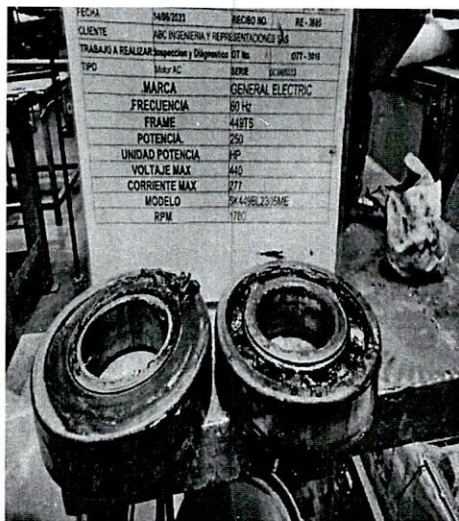 FECHA 14/06/2023 RECIBO NO. RE - 3685
CLIENTE ABC INGENIERIA Y REPRESENTACIONES SAS
TRABAJO A REALIZAR: Inspeccion y Diagnostico OT No. OTT - 3016
TIPO Motor AC SERIE
MARCA GENERAL ELECTRIC
FRECUENCIA 60 Hz
FRAME 449TS
POTENCIA 250
UNIDAD POTENCIA HP
VOLTAJE MAX 440
CORRIENTE MAX 277
MODELO 5K449BL2305ME
RPM 1780